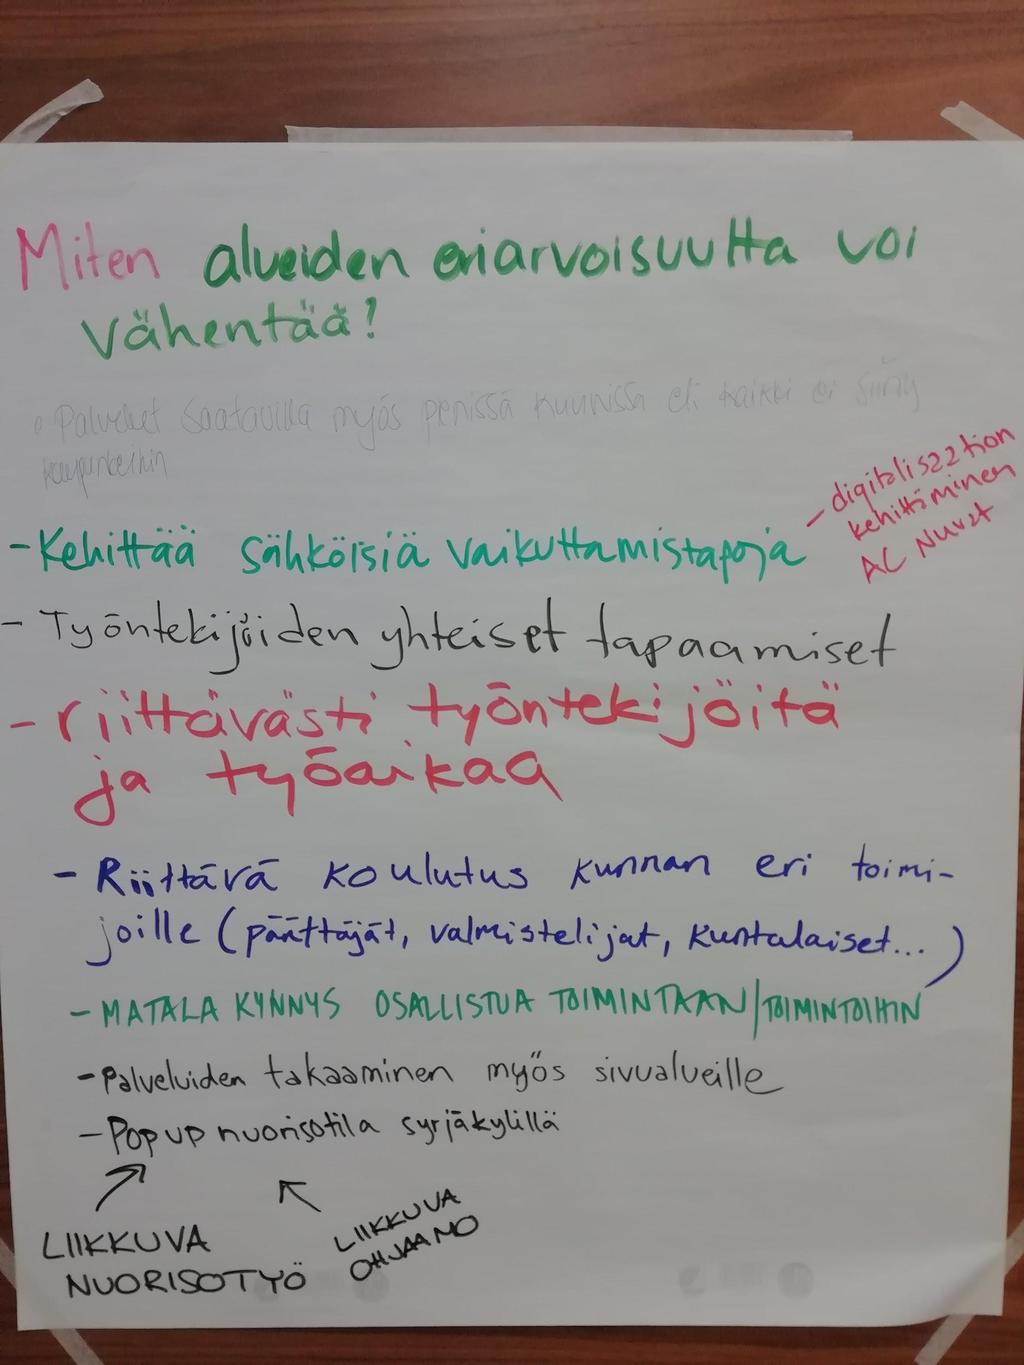 Miten alueiden eriarvoisuutta voi
vähentää?
• Palvelut saatavilla myös penissä kuunissa eli kaikki ei siirry
kaupunkeihin
- Kehittää sähköisiä vaikuttamistapoja
- digitalisaation
kehittäminen
AC Nuvat
- Työntekijöiden yhteiset tapaamiset
- riittävästi työntekijöitä
ja työaikaa
- Riittävä koulutus kunnan eri toimi-
joille (päättäjät, valmistelijat, kuntalaiset...)
- MATALA KYNNYS OSALLISTUA TOIMINTAAN/TOIMINTOIHIN
- Palveluiden takaaminen myös sivualueille
- Pop up nuorisotila syrjäkylillä
LIIKKUVA
NUORISOTYÖ
LIIKKUVA
OHJAAMO